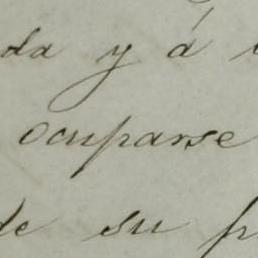 da y á
ocuparse
de su